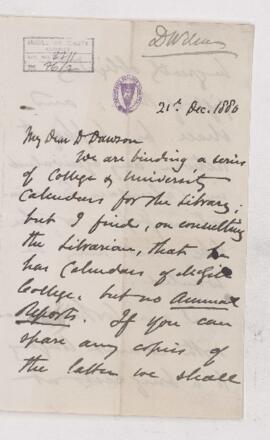 D Wilson
21st Dec. 1880
My Dear Dr Dawson
We are binding a series
of College & University
Calendars for the Library;
but I find, on consulting
the Librarian, that he
has Calendars of McGill
College, but no Annual
Reports. If you can
spare any copies of
the latter we shall